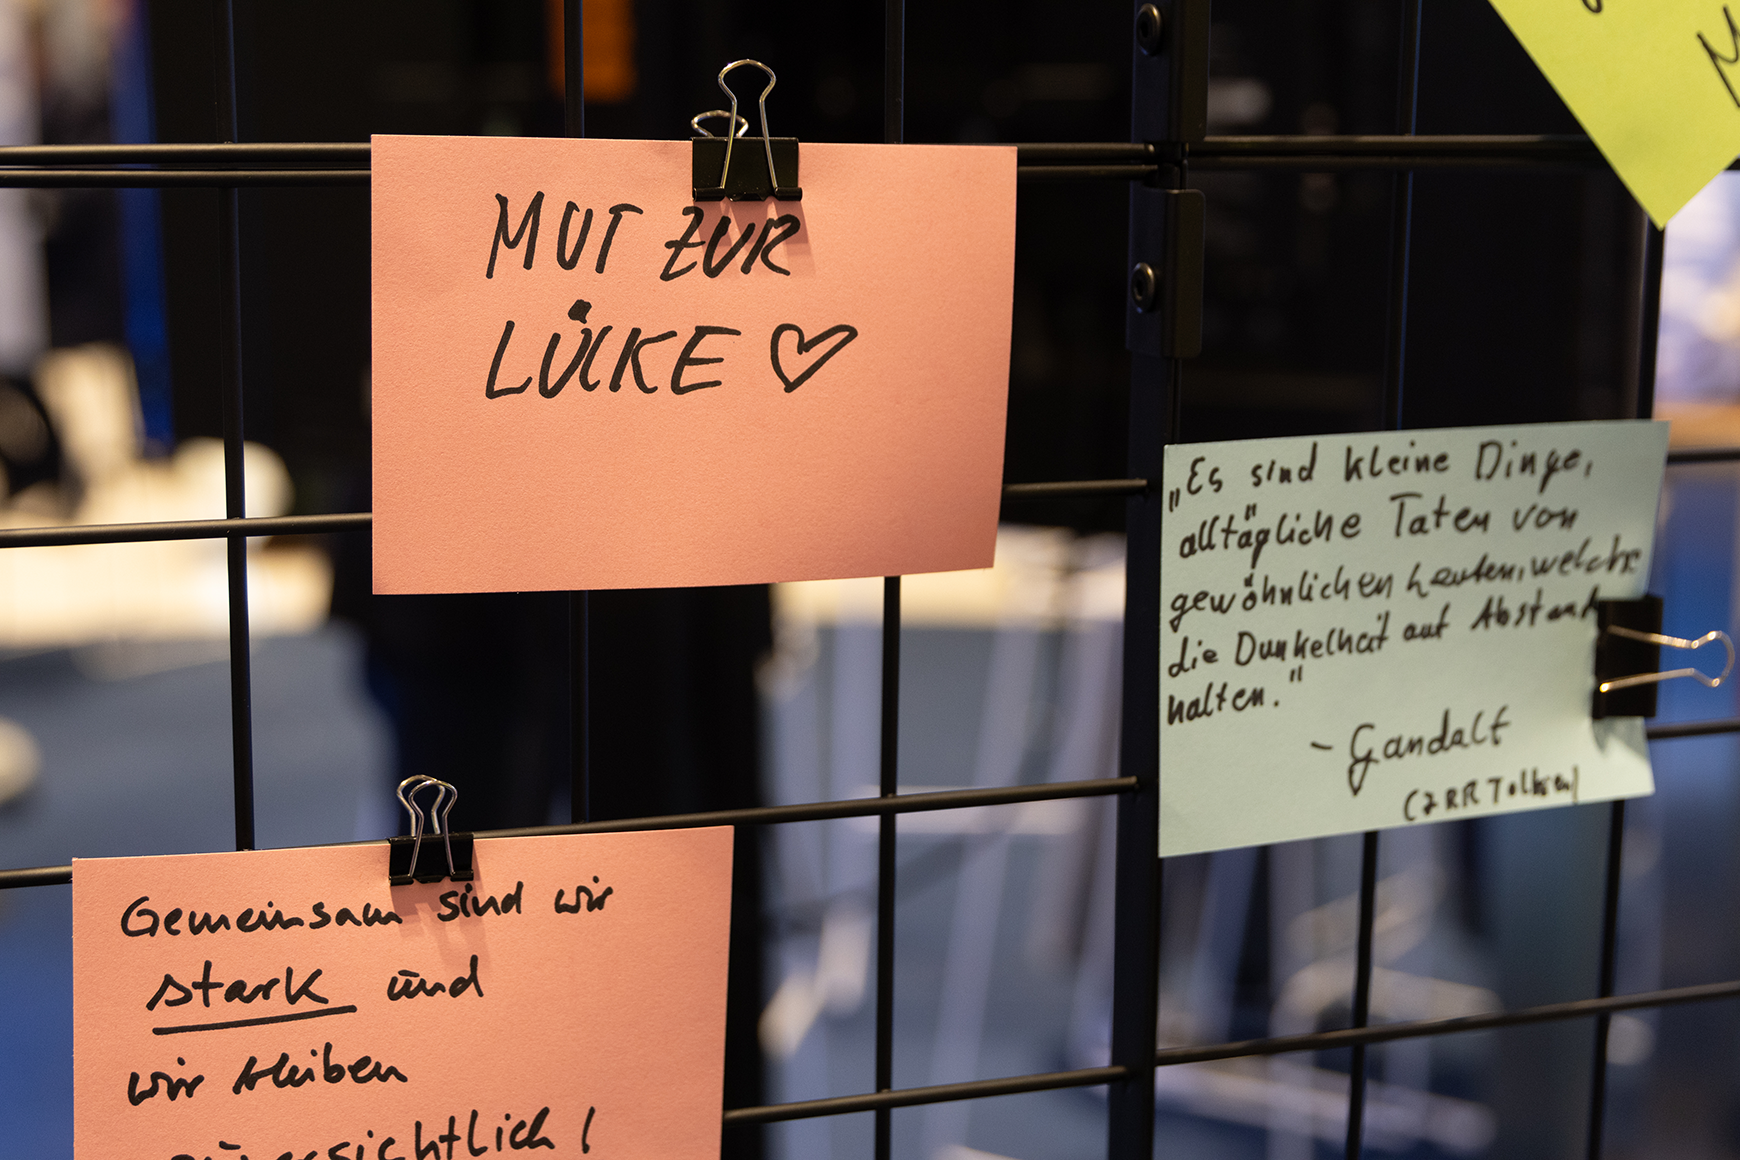 MUT ZUR
LÜCKE ♡
„Es sind kleine Dinge,
alltägliche Taten von
gewöhnlichen Leuten, welche
die Dunkelheit auf Abstand
halten."
- Gandalf
(JRR Tolkien)
Gemeinsam sind wir
stark und
wir bleiben
zuversichtlich!